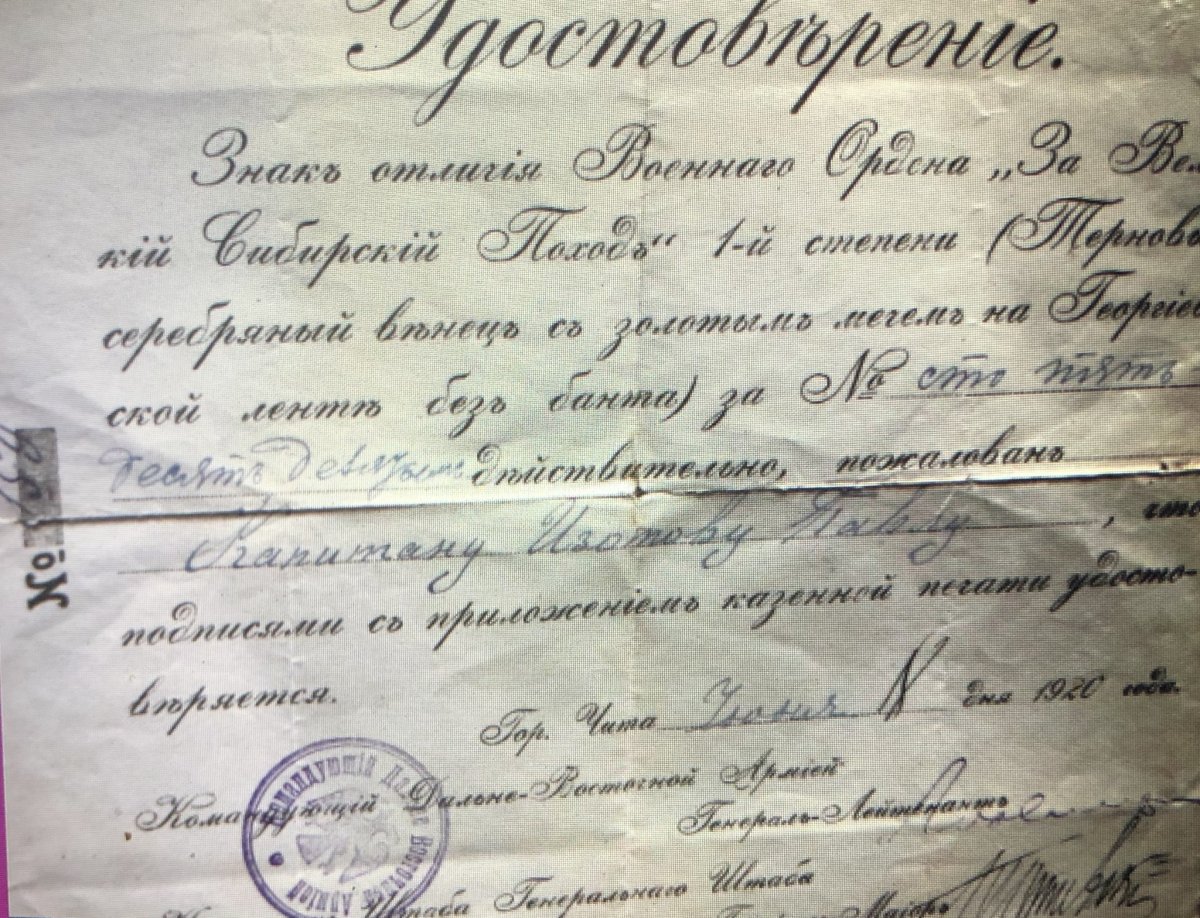 Удостовѣреніе.
Знакъ отличія Военнаго Ордена „За Вел
кій Сибирскій Походъ“ 1-й степени (Терново
серебряный вѣнецъ съ золотымъ мечемъ на Георгіев
ской лентѣ безъ банта) за № сто пять
десятъ девятымъ дѣйствительно, пожалованъ
Капитану Изотову Павлу, что
подписями съ приложеніемъ казенной печати удосто-
вѣряется.
Гор. Чита Іюня дня 1920 года.
Командующій Дальне-Восточной Арміей
Генералъ-Лейтенантъ
Штаба Генеральнаго Штаба
Маіоръ
№
Командующій Дальне Восточной Арміей